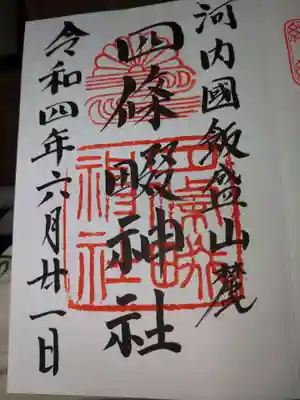 河内國飯盛山麓
四條畷神社
令和四年六月廿一日
四條畷
神社